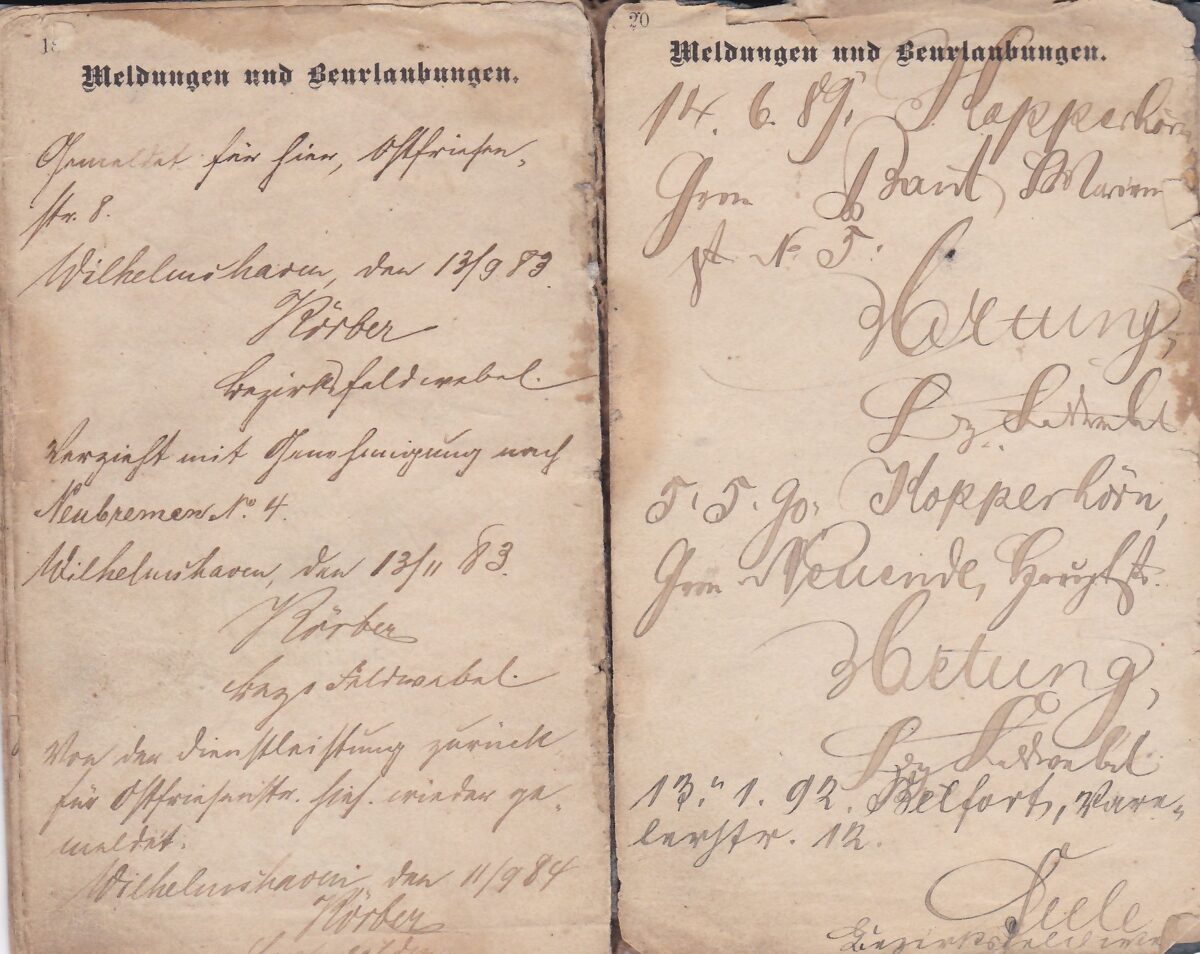 18
Meldungen und Beurlaubungen.
Gemeldet für hier, Ostfriesen-
str. 8.
Wilhelmshaven, den 13/9 83.
Körber
Bezirksfeldwebel.
Verzieht mit Genehmigung nach
Neubremen No. 4.
Wilhelmshaven, den 13/11 83.
Körber
Bezs Feldwebel.
Von der Dienstleistung zurück
für Ostfriesenstr. hies. wieder ge-
meldet.
Wilhelmshaven, den 11/9 84
Körber
20
Meldungen und Beurlaubungen.
14. 6. 89. Kopperhörn
Gem Bant, Marien
st No 5.
Hartung,
Bz. Feldwebel
5. 5. 90. Kopperhörn,
Gem Neuende, Hauptstr.
Hartung,
Bz Feldwebel
13. 1. 92. Belfort, Vare-
lerstr. 12.
Seele
Bezirksfeldwe